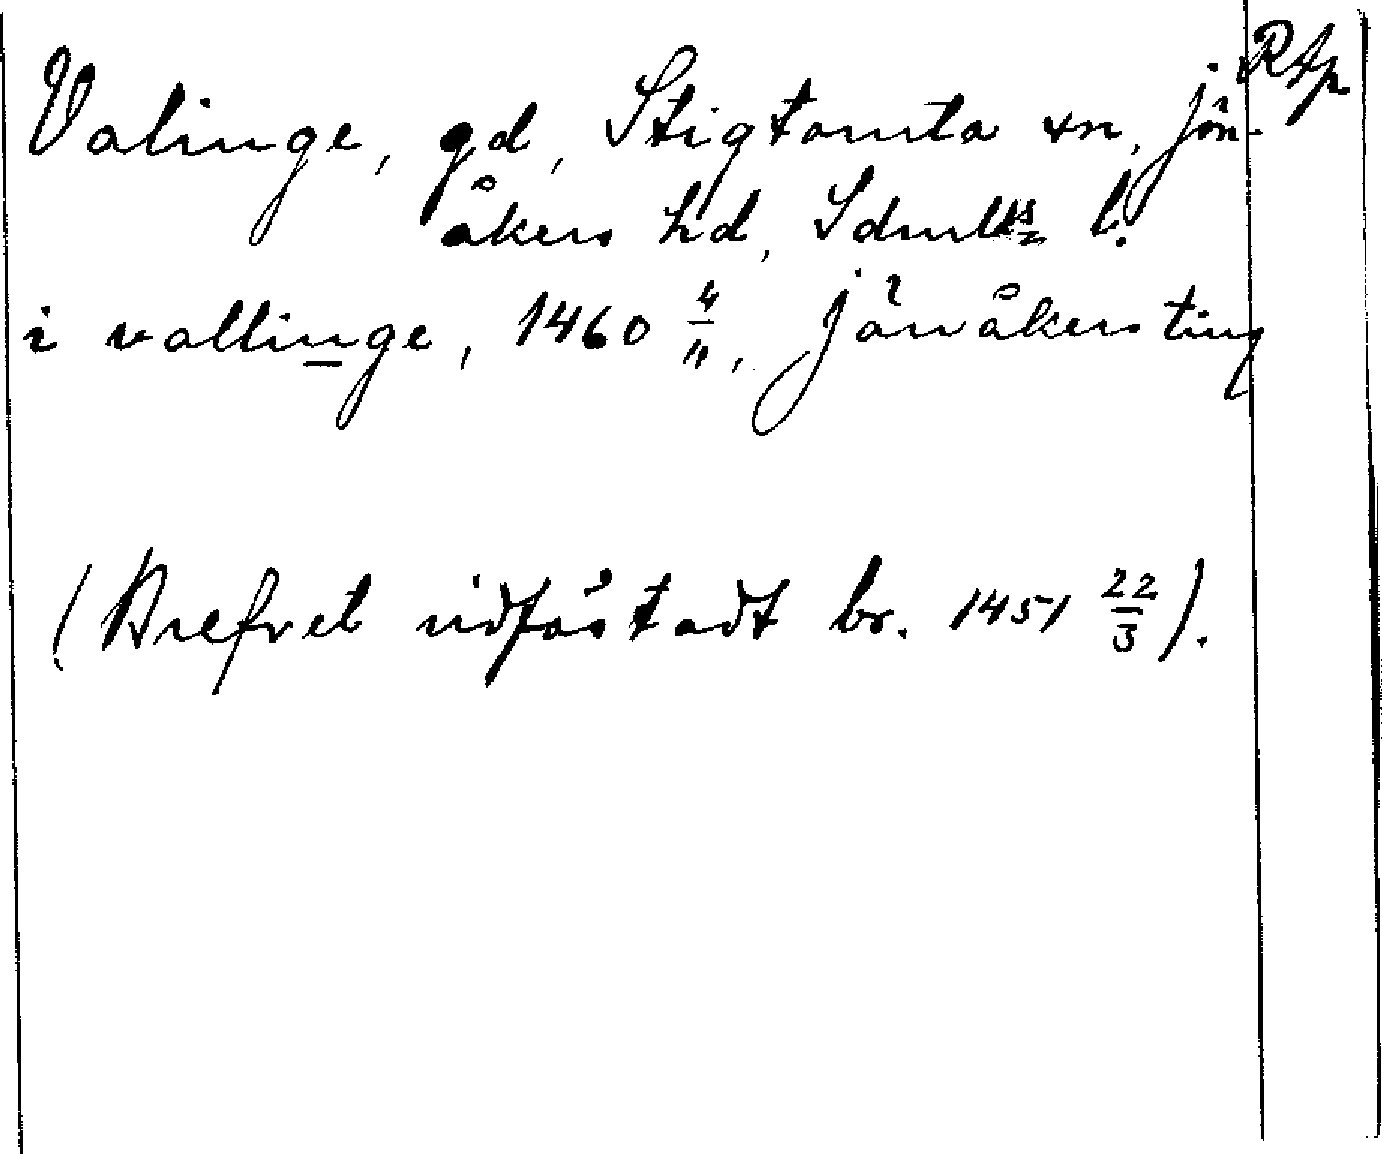 RAp
Valinge, gd, Stigtomta sn, Jön-
åkers hd, Sdmlds l.
i vallinge, 1460 4/11, Jönåkers ting
(Brefvet vidfästadt br. 1451 22/3).